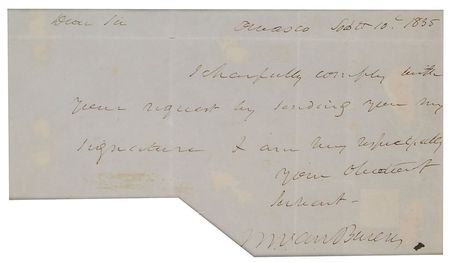 Dear Sir Owasco Sept 10th 1855
I cheerfully comply with
your request by sending you my
signature I am very respectfully
your Obedient
Servant -
M Van Buren